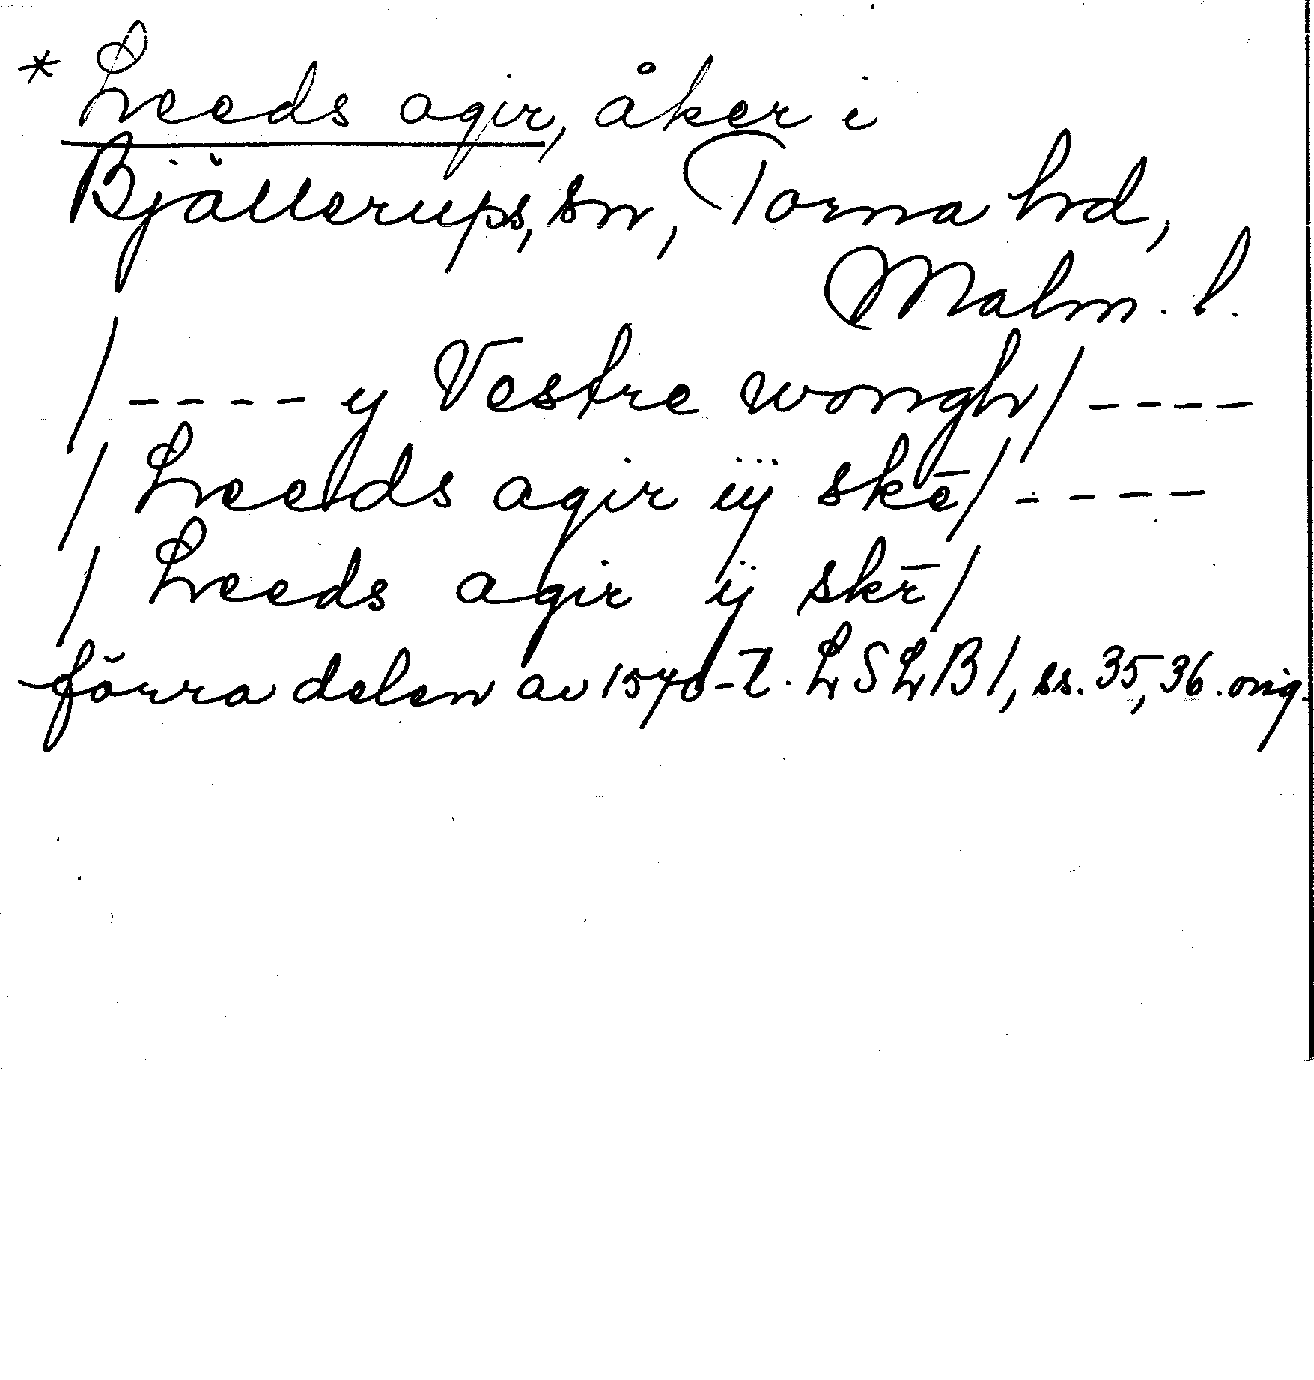 * Leeds agir, åker i
Bjällerups, sn, Torna hd,
Malm. l.
/ ---- y Vestre wongh / ----
/ Leeds agir iij skē / ----
/ Leeds agir ij skē /
förra delen av 1570-t. LSLB 1, ss. 35, 36. orig.